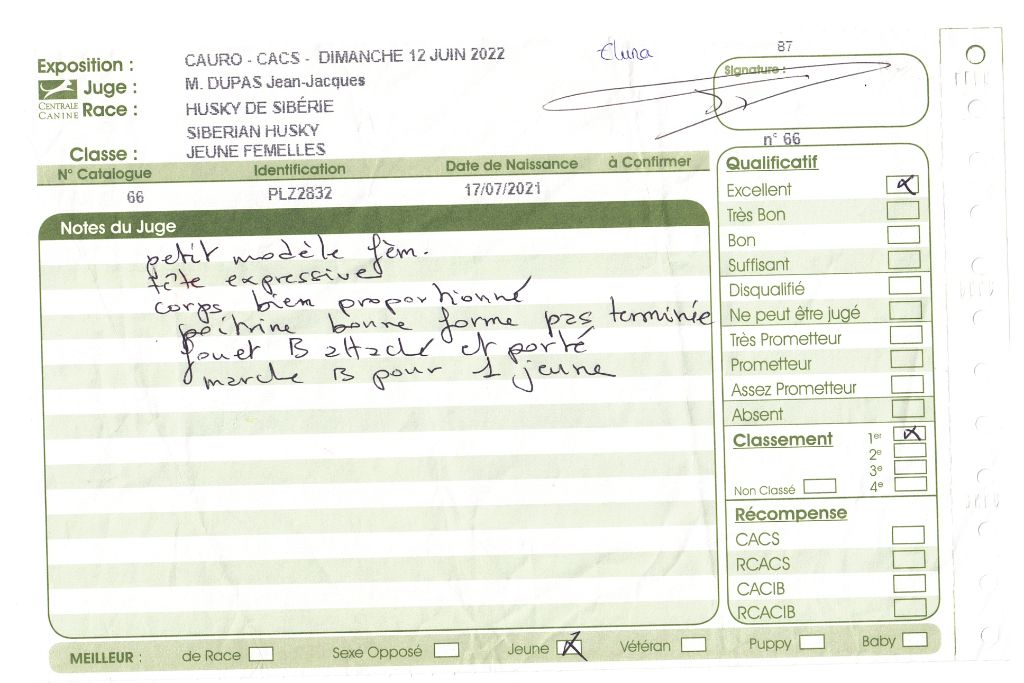 Exposition : CAURO - CACS - DIMANCHE 12 JUIN 2022
87
Signature :
CENTRALE CANINE
Juge : M. DUPAS Jean-Jacques
Race : HUSKY DE SIBÉRIE
SIBERIAN HUSKY
Classe : JEUNE FEMELLES
n° 66
N° Catalogue Identification Date de Naissance à Confirmer
66 PLZ2832 17/07/2021
Notes du Juge
petit modèle fém.
tête expressive
corps bien proportionné
poitrine bonne forme pas terminée
fouet B attaché et porté
marche B pour 1 jeune
Qualificatif
Excellent x
Très Bon
Bon
Suffisant
Disqualifié
Ne peut être jugé
Très Prometteur
Prometteur
Assez Prometteur
Absent
Classement 1er x
2e
3e
Non Classé 4e
Récompense
CACS
RCACS
CACIB
RCACIB
MEILLEUR : de Race Sexe Opposé Jeune x Vétéran Puppy Baby